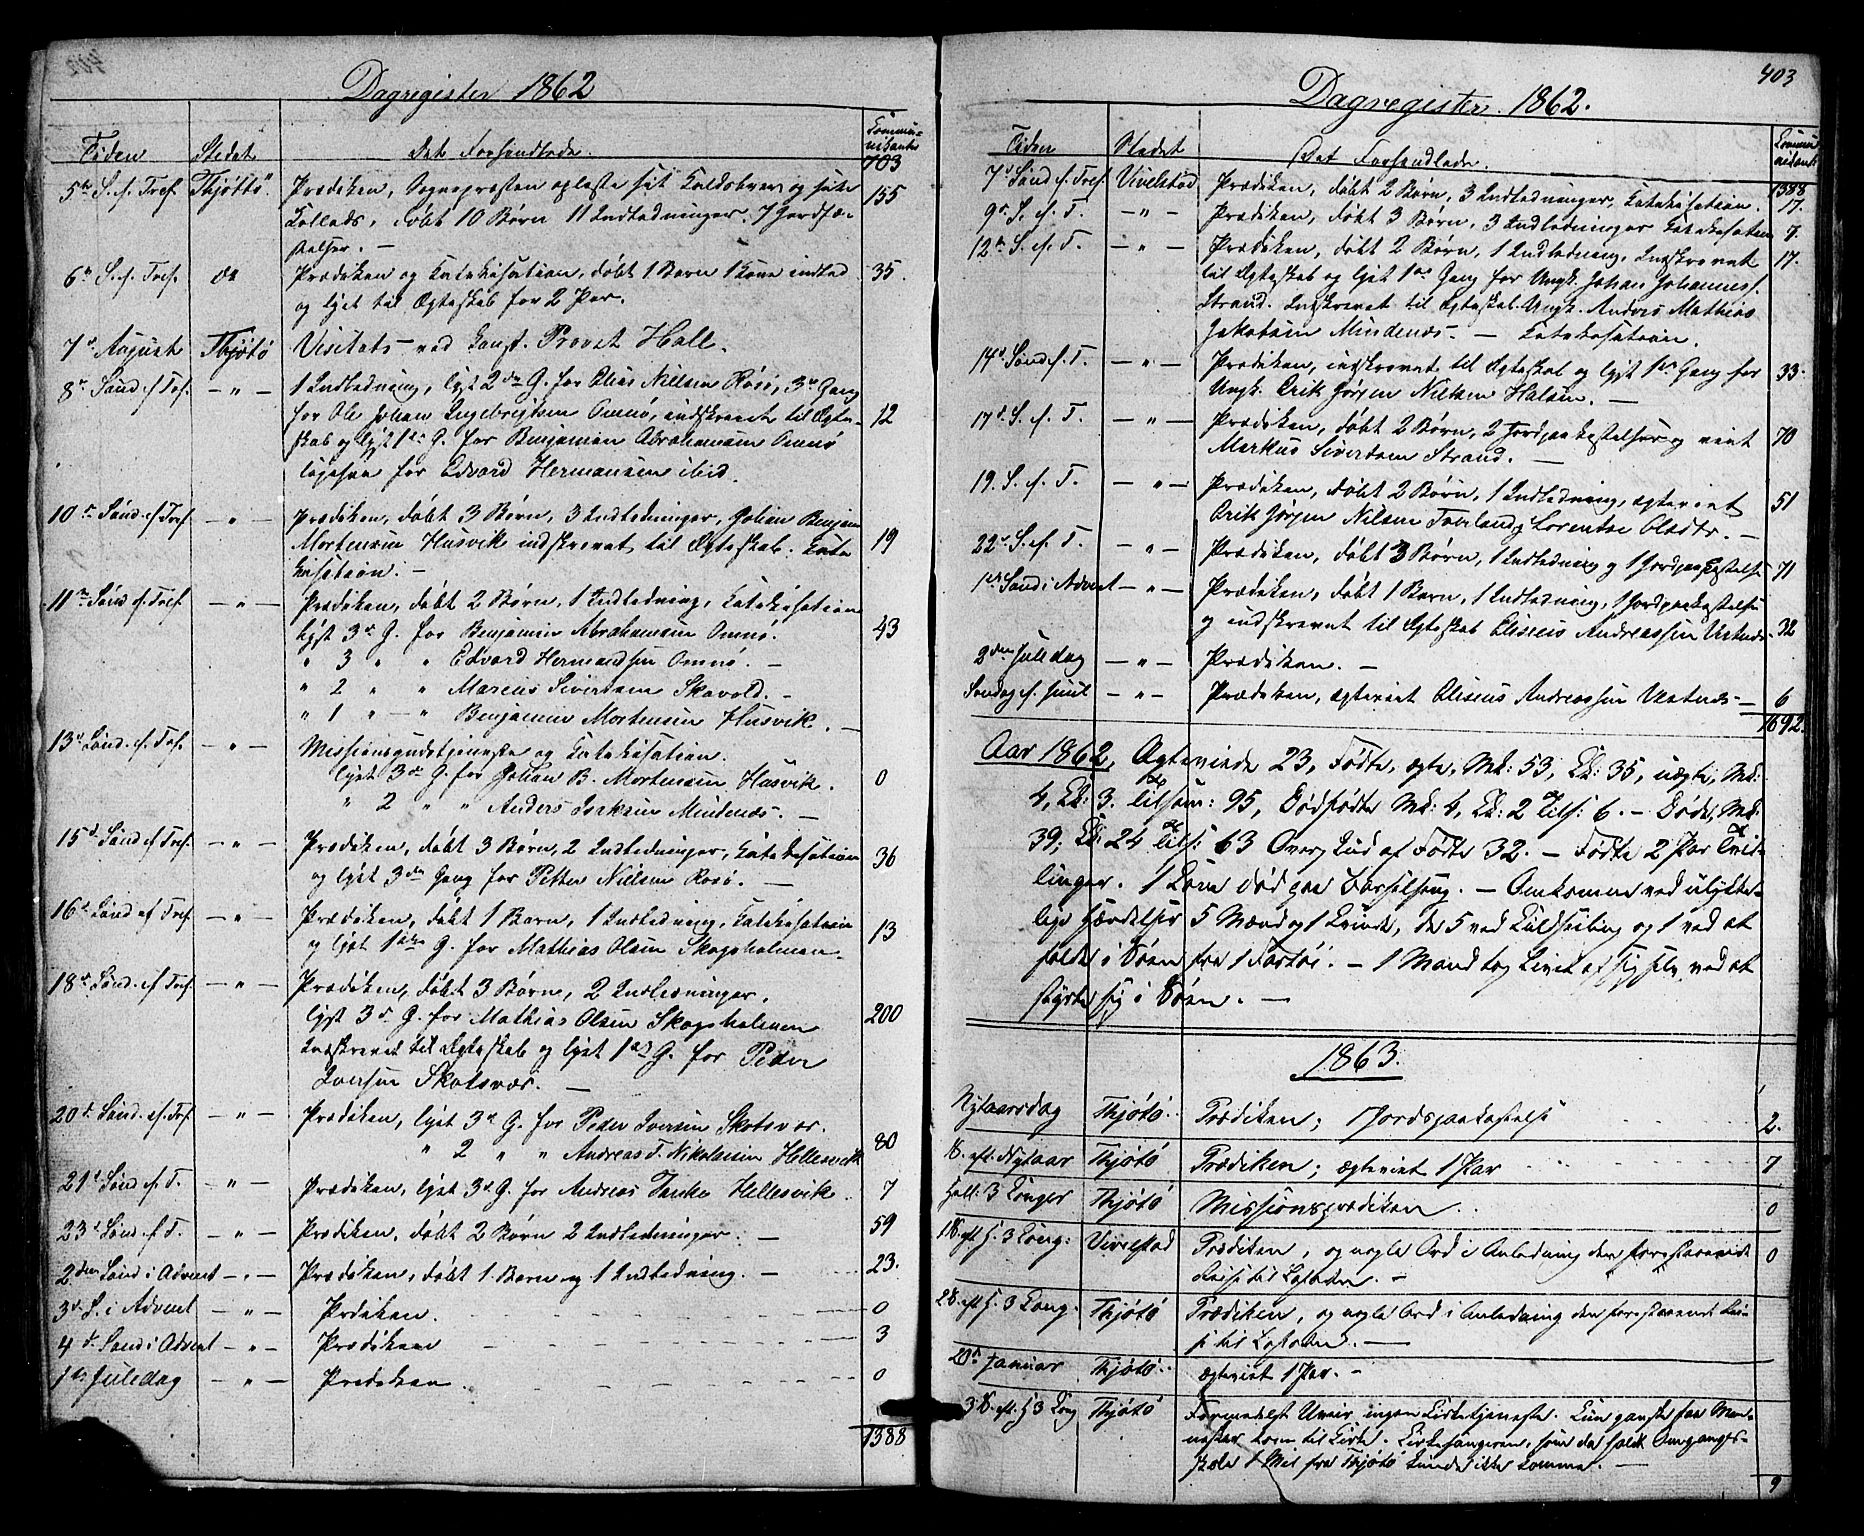 Dagregister 1862
Tiden Stedet Det Forhandlede. Communikanter
703
5te S. f. Tref. Thjöttö Prædiken, Sognepræsten oplæste sit Kaldsbrev og sit 155
Kollats, döbt 10 Börn 11 Indledninger. 7 Jordfæ-
stelser. —
6te S. f. Tref. do Prædiken og Katekisation, döbt 1 Barn 1 Kone indled 35.
og lyst til Ægteskab for 2 Par.
7d August Thjötö Visitats ved Const. Provst Hall.
8de Sönd. f. Tref. — " — 1 Indledning, lyst 2den G. for Elias Nilsen Rösö, 3de Gang
for Ole Johan Ingebrigtsen Omnö, indskrevet til Ægte- 12
skab og lyst 1ste G. for Benjamin Abrahamsen Omnö
ligesaa for Edvard Hermansen ibid.
10de Sönd. ef Tref. — " — Prædiken, döbt 3 Börn, 3 Indledninger, Johan Benjam.
Mortensen Husvik indskrevet til Ægteskab. Kate 19
kisation. —
11te Sönd. ef Tref. — " — Prædiken, döbt 2 Börn, 1 Indledning, Katekisation
Lyst 3de G. for Benjamin Abrahamsen Omnö. 43
" 3 " " Edvard Hermandsen Omnö. —
" 2 " " Marcus Siverdsen Skavold. —
" 1 " — " Benjamin Mortensen Husvik. —
13de Sönd. ef. Tref. — " — Missionsgudstjeneste og Katekisation.
lyst 3de G. for Johan B. Mortensen Husvik. 0
" 2 " " Anders Jacksen Mindenæs. —
15d. Sönd ef Tref. — " — Prædiken, döbt 3 Börn, 2 Indledninger, Katekisation 36
og lyst 3den Gang for Petter Nielsen Rosö. —
16d. Sönd ef Tref. — " — Prædiken, döbt 1 Barn, 1 Indledning, Katekisation 13
og lyst 1ste G. for Mathias Olsen Skogsholmen —
18de Sönd. ef Tref. — " — Prædiken, döbt 3 Börn, 2 Indledninger.
lyst 3d. G. for Mathias Olsen Skogsholmen 200
Indskrevet til Ægteskab og lyst 1ste G. for Peder
Iversen Skotsvær. —
20d. Sönd. ef. Tref. — " — Prædiken, lyst 3de G. for Peder Iversen Skotsvær.
" 2 " " Andreas T. Nikolaisen Hellesvik 80
21d Sönd ef. T. — " — Prædiken, lyst 3de G. for Andreas Hellesvik. 7
23d Sönd. ef T. — " — Prædiken, döbt 2 Börn 2 Indledninger. — 59
2den Sönd i Advent — " — Prædiken, döbt 1 Barn og 1 Indledning. — 23.
3d. S. i Advent — " — Prdiken. 0
4d. Sönd i Advent — " — Prædiken 3
1ste Juledag — " — Prediken. 0
1388
403
Dagregister 1862.
Tiden Stedet Det Forhandlede. Communikant.
1388
7d Sönd f. Tref. Vivelstad Prædiken, döbt 2 Börn, 3 Indledninger, Katekisation. 17.
9de S. ef. T. — " — Prædiken, döbt 3 Börn, 3 Indledninger Katekisation 7.
12te S. ef. T. — " — Prædiken, döbt 2 Börn, 1 Indledning, Indskrevet 17.
til Ægteskab og lyst 1ste Gang for Ungk. Johan Johanness.
Strand. Indskrevet til Ægteskab Ungk. Anders Mathias
Jakobsen Mindenæs. — Katekisation.
14d. Sönd f. T. — " — Prædiken, indskrevet til Ægteskab og lyst 1ste Gang for 33.
Ungk. Erik Jörgen Nilsen Halsen. —
17d. S. ef. T. — " — Prædiken, döbt 2 Börn, 2 Jordpaakastelser og viet 70
Markus Siverdsen Strand. —
19. S. ef. T. — " — Prædiken, döbt 2 Börn, 1 Indledning, ægteviet 51
Erik Jörgen Nilsen Tverland og Lorentse Olsdtr. —
22de S. ef. T. — " — Prædiken, döbt 3 Börn, 1 Indledning og 1 Jordpaakastelse 71
1ste Sönd i Advent — " — Prædiken, döbt 1 Barn, 1 Indledning, 1 Jordpaakastelse
og indskrevet til Ægteskab Eliseus Andreassen Vestnes. 32
2den Juledag — " — Prædiken. —
Söndag ef. Juul — " — Prædiken, ægteviet Eliseus Andreassen Vestnes — 6
1692.
Aar 1862, Ægteviede 23, Födte, ægte, Mk: 53, Qk: 35, uægte, Mk:
4, Qk: 3. Tilsam: 95, Dödfödte Mk: 4, Qk: 2 Tils: 6. — Döde, Mk:
39; Qk: 24 Tils: 63 Overskud af Födte 32. — Födte 2 Par Tvil-
linger. 1 Kone död paa Barselseng. — Omkomne ved ulykke-
lige Hændelser 5 Mænd og 1 Kvinde, de 5 ved Kuldseiling og 1 ved at
falde i Söen fra 1 Fartöi. — 1 Mand tog Livet af sig selv ved at
styrte sig i Söen. —
1863.
Nytaarsdag Thjötö. Prædiken; 1 Jordspaakastelse 2.
S. eft. Nytaar Thjötö Prædiken; ægteviet 1 Par 7
Hell: 3 Konger Thjötö Missionsprædiken. 0
1 S. eft H. 3 Kong: Vivelstad Prædiken, og nogle Ord i Anledning den forestaaende 0
Reise til Lofoden. —
2 S. eft H. 3 Kong. Thjötö Prædiken, og nogle Ord i Anledning den forestaaende Rei-
se til Lofoden. —
20de Januar Thjötö. ægteviet 1 Par. —
3 S. eft. H 3 Kong Thjötö Formedelst Uveir ingen Kirketjeneste. Kun ganske faa Men-
nesker kom til Kirke. Kirkesangeren, som da holdt Omgangs-
skole 1 Mil fra Thjötö kunde ikke komme. —
9